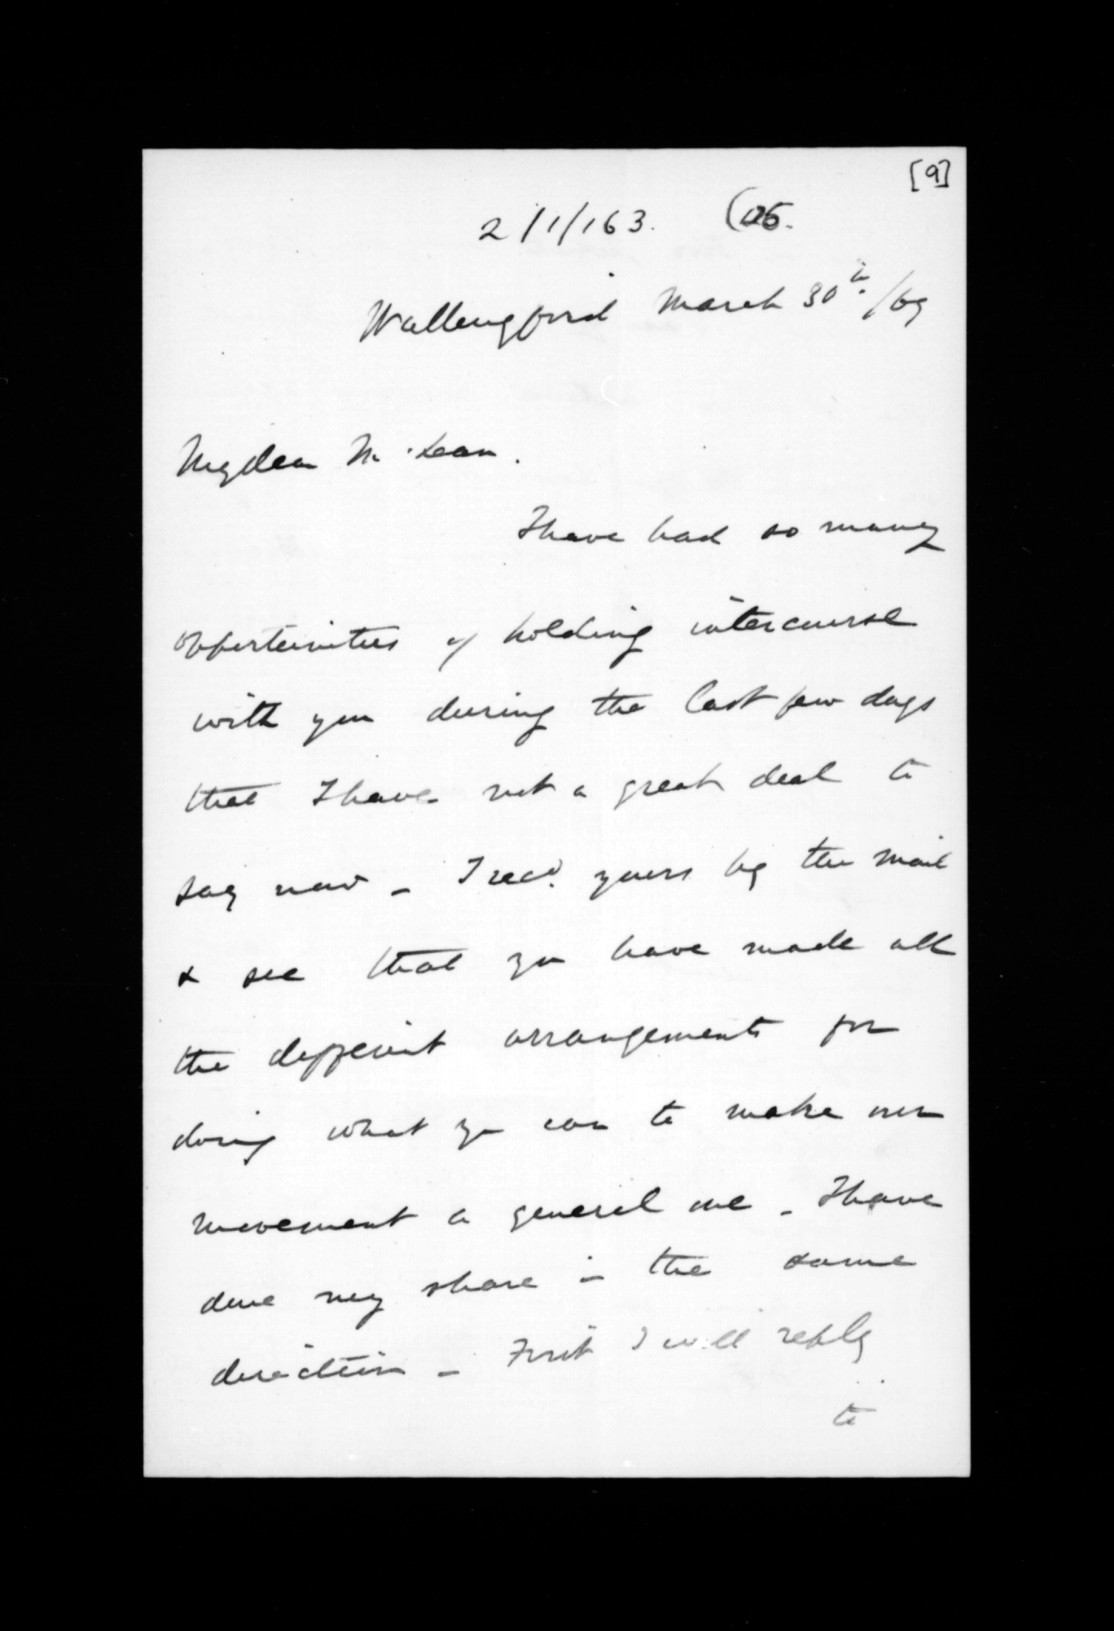 [9]
2/1/163.
Wallingford March 30th/69
My dear McLean.
I have had so many
opportunities of holding intercourse
with you during the last few days
that I have not a great deal to
say now - I recd. yours by the mail
& see that you have made all
the different arrangements for
doing what you can to make our
movement a general one - I have
done my share in the same
direction - First I will reply
to